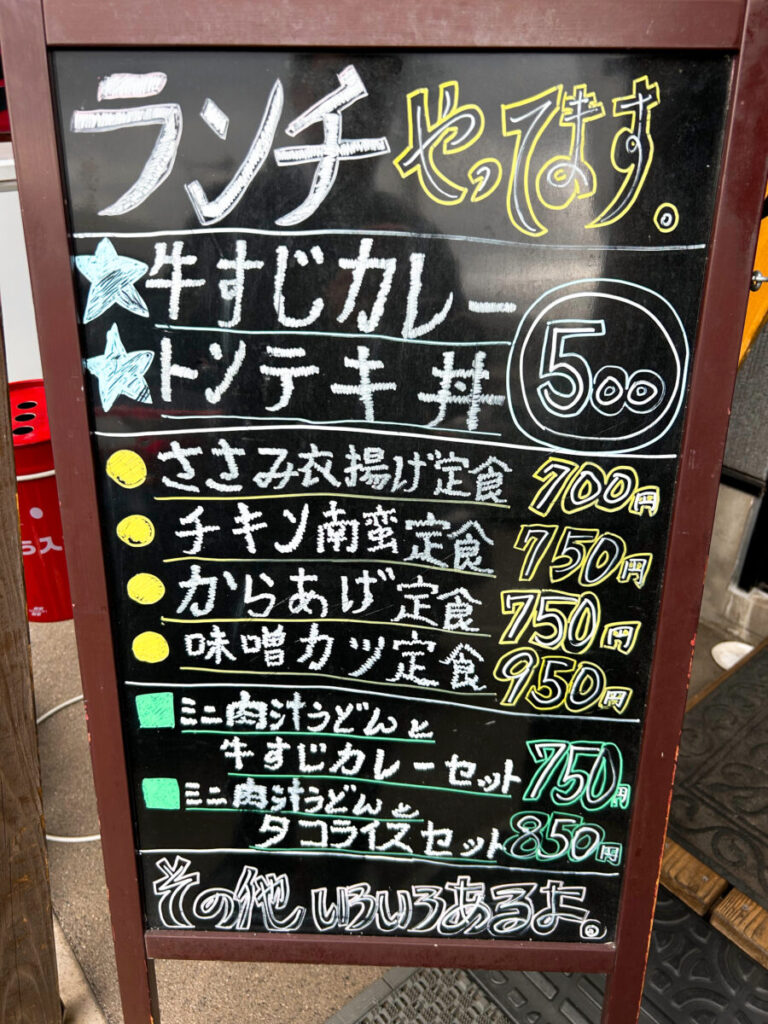 ランチ やってます。
牛すじカレー
トンテキ丼
500
ささみ衣揚げ定食 700円
チキン南蛮定食 750円
からあげ定食 750円
味噌カツ定食 950円
ミニ肉汁うどんと
牛すじカレーセット 750円
ミニ肉汁うどんと
タコライスセット 850円
その他 いろいろあるよ。